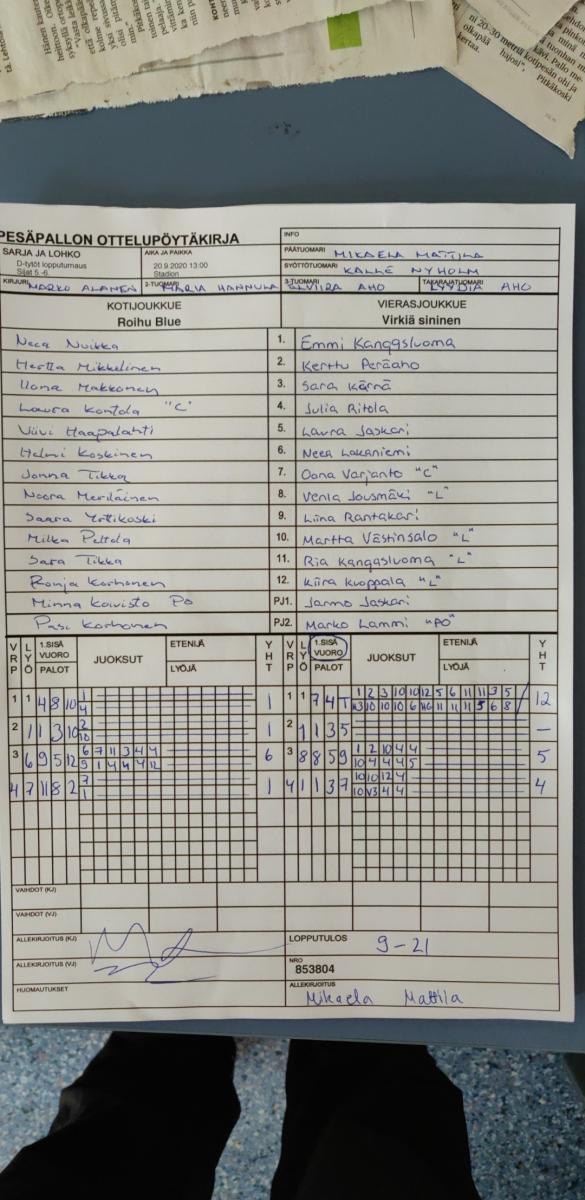 PESÄPALLON OTTELUPÖYTÄKIRJA
INFO
SARJA JA LOHKO
D-tytöt lopputurnaus
Sijat 5.-6.
AIKA JA PAIKKA
20.9.2020 13:00
Stadion
PÄÄTUOMARI MIKAELA MATTILA
SYÖTTÖTUOMARI KALLE NYHOLM
KIRJURI MARKO ALANEN 2-TUOMARI MARIA HANNULA 3-TUOMARI ELVIIRA AHO TAKARAJATUOMARI LYYDIA AHO
KOTIJOUKKUE VIERASJOUKKUE
Roihu Blue Virkiä sininen
Neea Nuikka 1. Emmi Kangasluoma
Hertta Mikkelinen 2. Kerttu Peräaho
Ilona Makkonen 3. Sara Kärnä
Laura Kontola "C" 4. Julia Ritola
Viivi Haapalahti 5. Laura Jaskari
Helmi Koskinen 6. Neea Lakaniemi
Jonna Tikka 7. Oona Varjanto "C"
Noora Meriläinen 8. Venla Jousmäki "L"
Saara 9. Liina Rantakari
Milka Peltola 10. Martta Västinsalo "L"
Sara Tikka 11. Ria Kangasluoma "L"
Ronja Korhonen 12. Kiira Kuoppala "L"
Minna Koivisto PO PJ1. Jarmo Jaskari
Pasi Korhonen PJ2. Marko Lammi "PO"
VRP LYÖ 1.SISÄ VUORO PALOT JUOKSUT ETENIJÄ LYÖJÄ YHT VRP LYÖ 1.SISÄ VUORO PALOT JUOKSUT ETENIJÄ LYÖJÄ YHT
1 1 4 8 10 1 1 1 1 7 4 T 1 2 3 10 10 12 5 6 11 11 3 5 12
4 10 10 10 6 11 11 11 5 6 8
2 1 1 3 10 2 1 2 1 1 3 5 –
10
3 6 9 5 12 6 7 11 3 4 4 6 3 8 8 5 9 1 2 10 4 4 5
9 1 4 4 4 12 10 4 4 4 5
4 7 11 8 2 7 1 4 1 1 3 7 10 10 12 4 4
1 10 V3 4 4
VAIHDOT (KJ)
VAIHDOT (VJ)
ALLEKIRJOITUS (KJ)
LOPPUTULOS 9-21
ALLEKIRJOITUS (VJ)
NRO
853804
HUOMAUTUKSET
ALLEKIRJOITUS
Mikaela Mattila